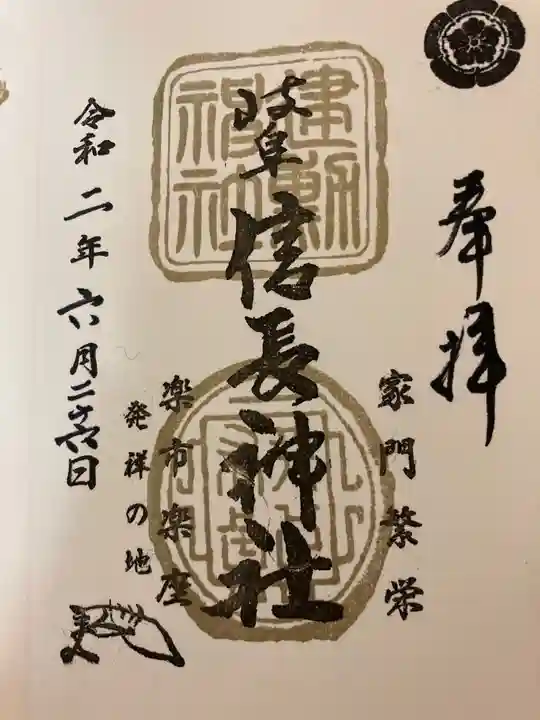 奉拝
家門繁栄
建勲
神社
岐阜信長神社
楽市楽座
発祥の地
令和二年六月二十六日